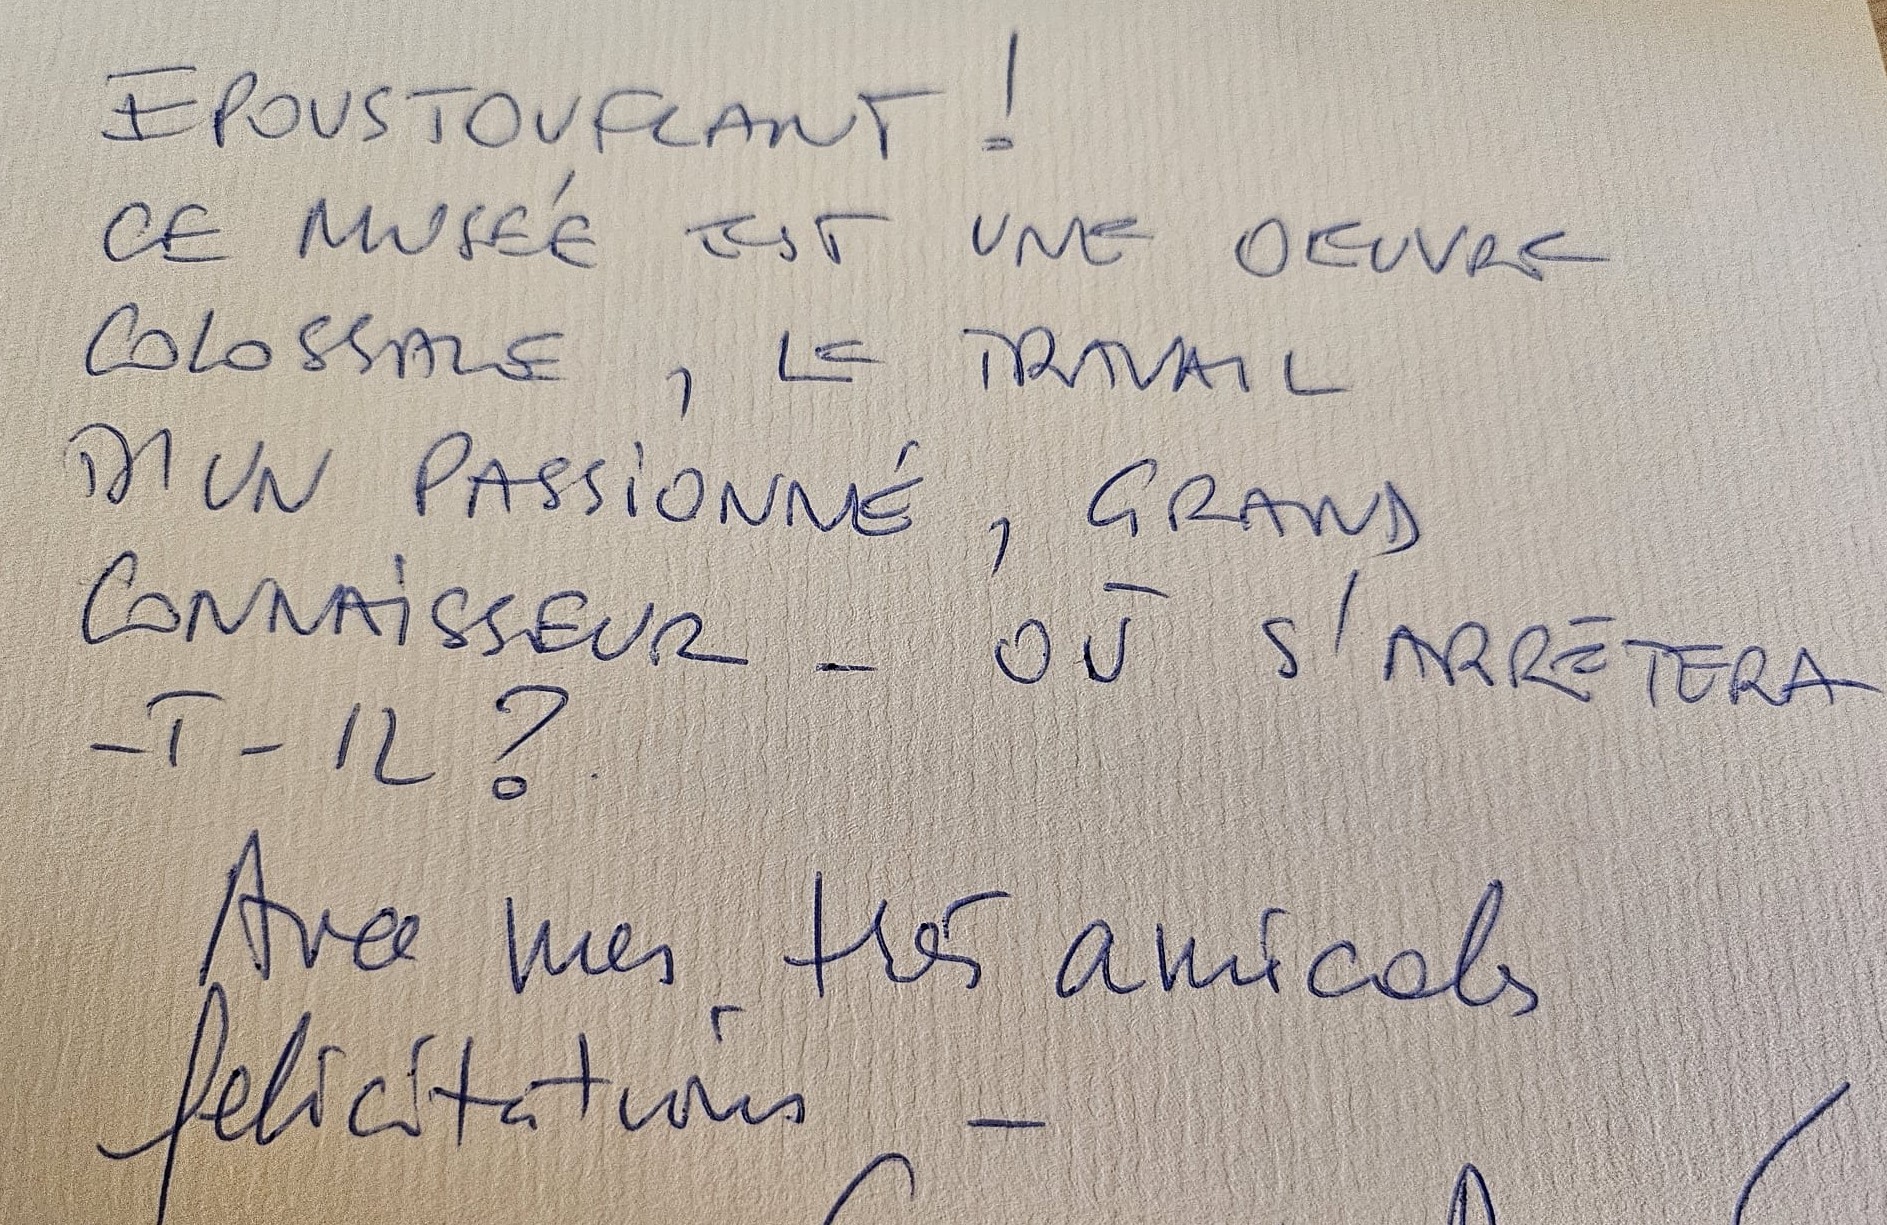 EPOUSTOUFLANT !
CE MUSÉE EST UNE OEUVRE
COLOSSALE, LE TRAVAIL
D'UN PASSIONNÉ, GRAND
CONNAISSEUR - OÙ S'ARRÊTERA
-T-IL ?
Avec mes très amicales
felicitations -